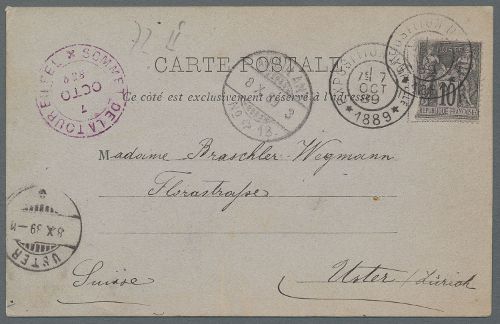 CARTE POSTALE
Ce côté est exclusivement réservé à l'adresse
SOMMET DE LA TOUR EIFFEL
7
OCTO
8 X
EXPOSITION
7
OCT
89
1889
POSTES
10
REPUBLIQUE FRANCAISE
Madame Braschler-Wegmann
Florastraße
USTER
8 X 89-11
Suisse
Uster /Zürich